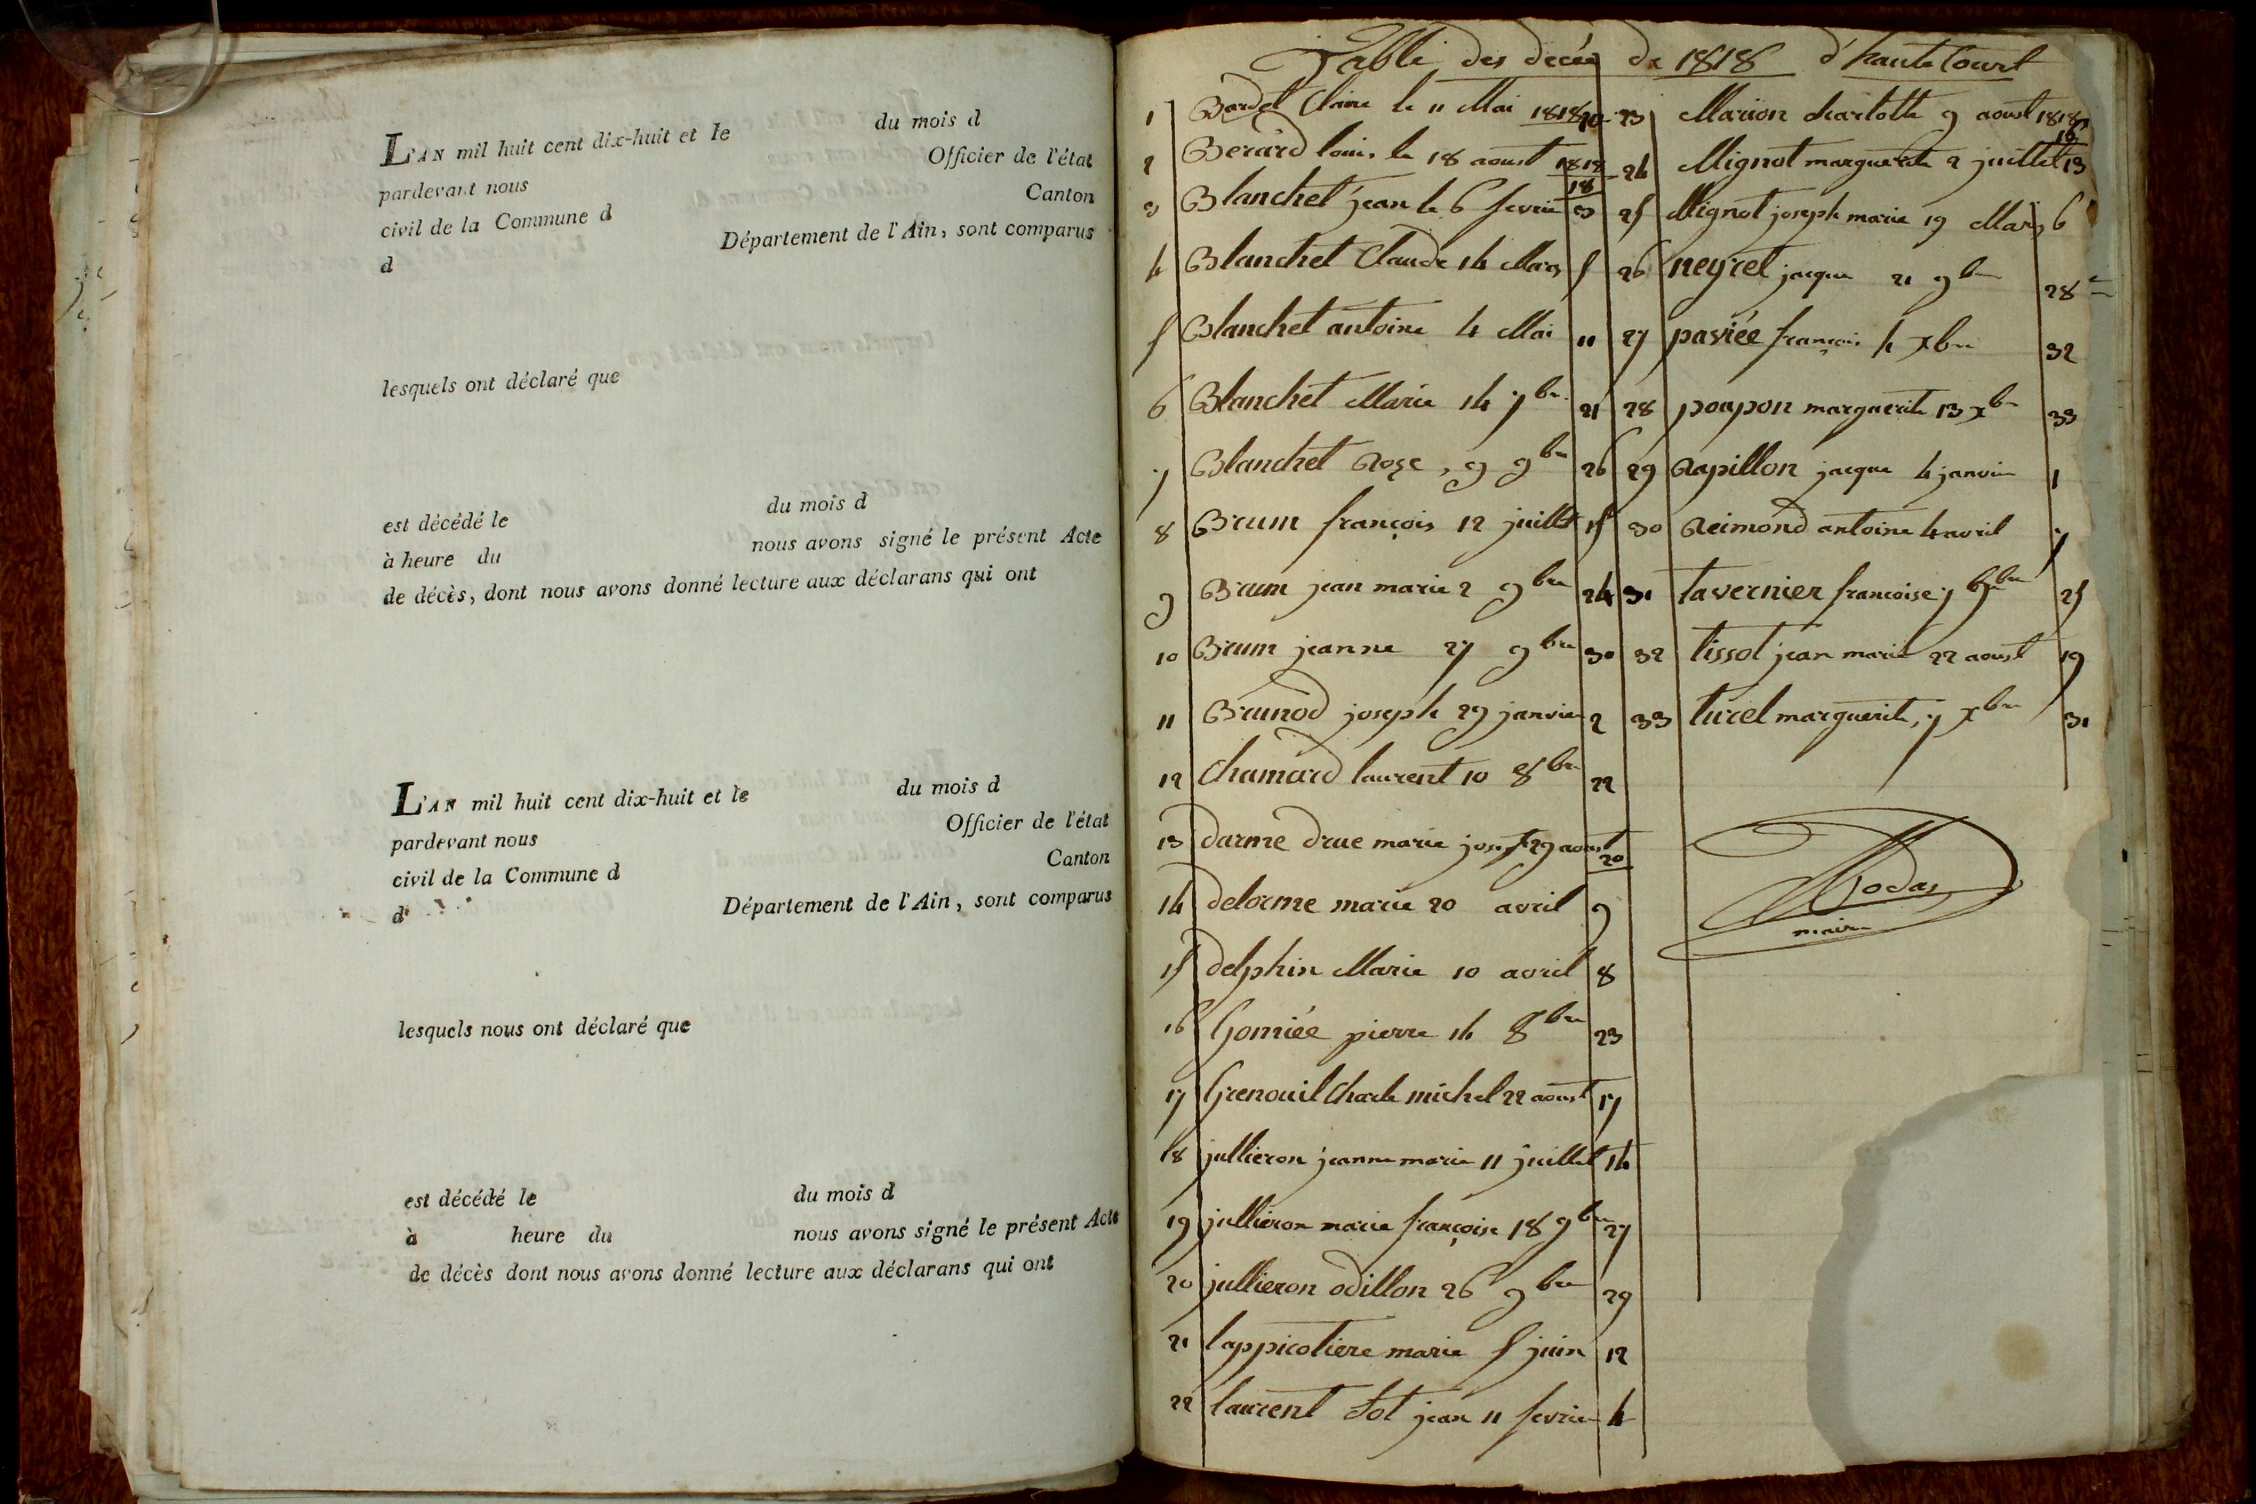 L'AN mil huit cent dix-huit et le du mois d
pardevant nous Officier de l'état
civil de la Commune d Canton
d Département de l'Ain, sont comparus
lesquels ont déclaré que
est décédé le du mois d
à heure du nous avons signé le présent Acte
de décès, dont nous avons donné lecture aux déclarans qui ont
L'AN mil huit cent dix-huit et le du mois d
pardevant nous Officier de l'état
civil de la Commune d Canton
d Département de l'Ain, sont comparus
lesquels nous ont déclaré que
est décédé le du mois d
à heure du nous avons signé le présent Acte
de décès dont nous avons donné lecture aux déclarans qui ont
Table des decés de 1818 d'hautecourt
1 Bardet Claire le 11 Mai 1818 10
2 Berard louis le 18 aoust 1818 18
3 Blanchet jean le 6 fevrier 3
4 Blanchet Claude 14 Mars 5
5 Blanchet antoine 4 Mai 11
6 Blanchet Marie 14 7bre 21
7 Blanchet Rose, 9 9bre 26
8 Brum françois 12 juillet 15
9 Brum jean marie 2 9bre 24
10 Brum jeanne 27 9bre 30
11 Brunod joseph 29 janvier 2
12 Chamard laurent 10 8bre 22
13 darme drue marie joseph 29 aoust 20
14 delorme marie 20 avril 9
15 delphin Marie 10 avril 8
16 Gomiée pierre 14 8bre 23
17 Grenouil Charle michel 22 aoust 17
18 jullieron jeanne marie 11 juillet 14
19 jullieron marie françoise 18 9bre 27
20 jullieron odillon 26 9bre 29
21 lappicotiere marie 5 juin 12
22 laurent Sot jean 11 fevrier 4
23 Marion charlotte 9 aoust 1818 16
24 Mignot marguerite 2 juillet 13
25 Mignot joseph marie 19 Mars 6
26 neyret jacque 21 9bre 28
27 paviée françois 4 xbre 32
28 poupon marguerite 13 xbre 33
29 Rapillon jacque 4 janvier 1
30 Reimond antoine 4 avril 7
31 tavernier francoise 7 9bre 25
32 tissot jean marie 22 aoust 19
33 turel marguerite, 7 xbre 31
Rodas
maire